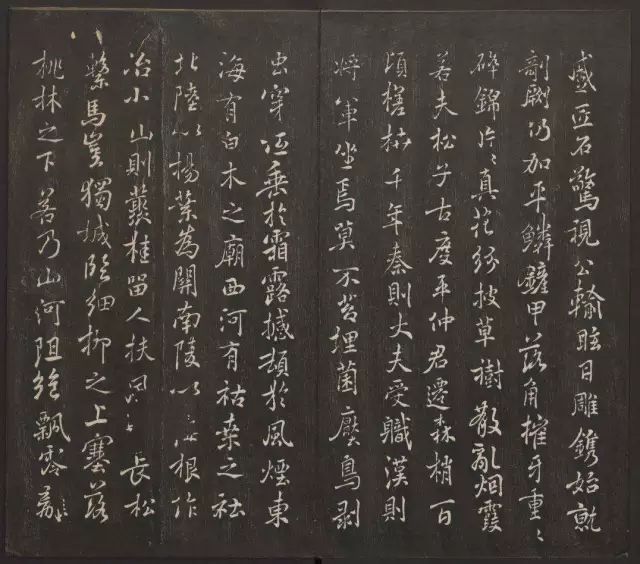 盛匠石驚視公輸眩目雕鐫始就
剞劂仍加平鱗鏟甲落角摧牙重〻
碎錦片〻真花紛披草樹散亂烟霞
若夫松子古度平仲君遷森梢百
頃槎枿千年秦則大夫受職漢則
將軍坐焉莫不苔埋菌壓鳥剝
虫穿低垂於霜露撼頓於風煙東
海有白木之廟西河有枯桑之社
北陸以楊葉為關南陵以根作
冶小山則叢桂留人扶長松
繫馬豈獨城臨細柳之上塞落
桃林之下若乃山河阻絕飄零離